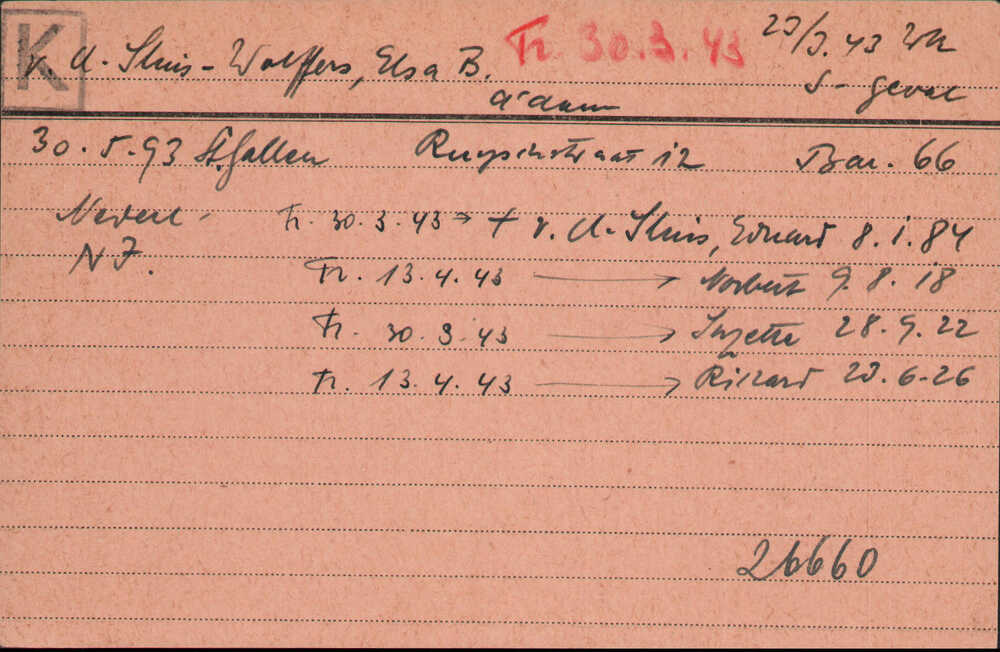 K
v. d. Sluis-Wolffers, Elsa B. Tr. 30.3.43 23/3.43 Wk
A'dam S-geval
30.5.93 St. Gallen Ruyschstraat 12 Bar. 66
Nederl. Tr. 30.3.43 → + v. d. Sluis, Eduard 8.1.84
N J. Tr. 13.4.43 → Norbert 9.8.18
Tr. 30.3.43 → Suzette 28.9.22
Tr. 13.4.43 → Richard 23.6-26
26660